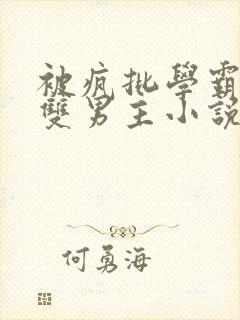 被疯批學霸
雙男主小說
何勇海